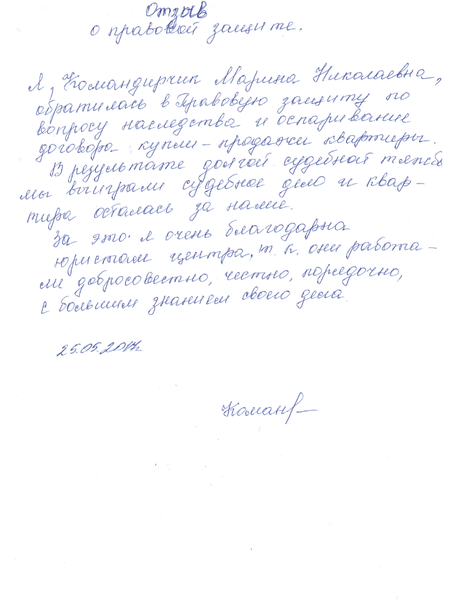 Отзыв
о правовой защите.
Я, Командирчик Марина Николаевна,
обратилась в Правовую защиту по
вопросу наследства и оспаривание
договора купли-продажи квартиры.
В результате долгой судебной тяжбе
мы выиграли судебное дело и квар-
тира осталась за нами.
За это я очень благодарна
юристам центра, т.к. они работа-
ли добросовестно, честно, порядочно,
с большим знанием своего дела.
25.05.2017г.
Коман